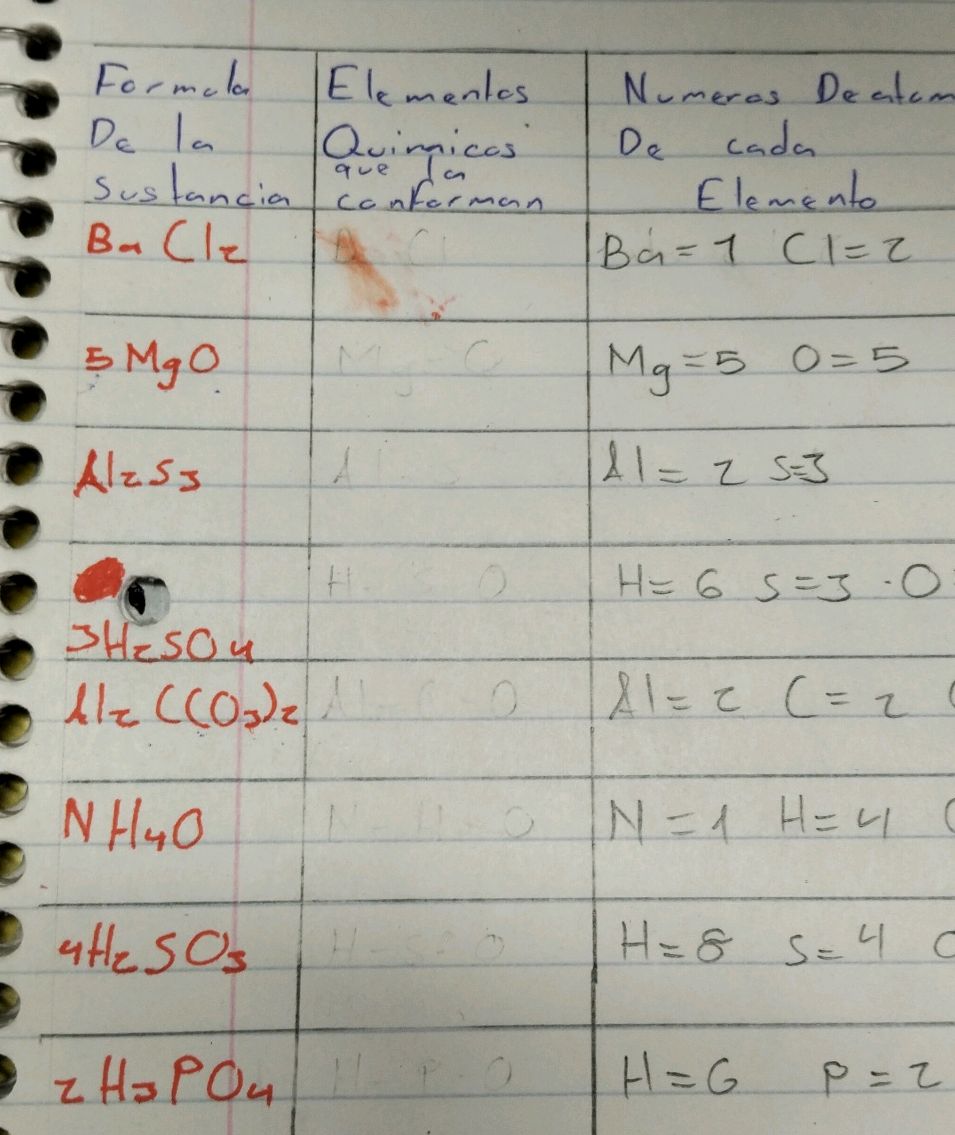 Formula Elementos Numeros De atom
De la Quimicos De cada
que la
Sustancia conforman Elemento
BaCl2 Cl Ba=1 Cl=2
5MgO Mg-O Mg=5 O=5
Al2S3 Al S Al=2 S=3
H-S-O H=6 S=3 ·O
3H2SO4
Al2(CO3)2 Al-C-O Al=2 C=2
NH4O N-H-O N=1 H=4
4H2SO3 H-S-O H=8 S=4
2H3PO4 H-P-O H=6 P=2